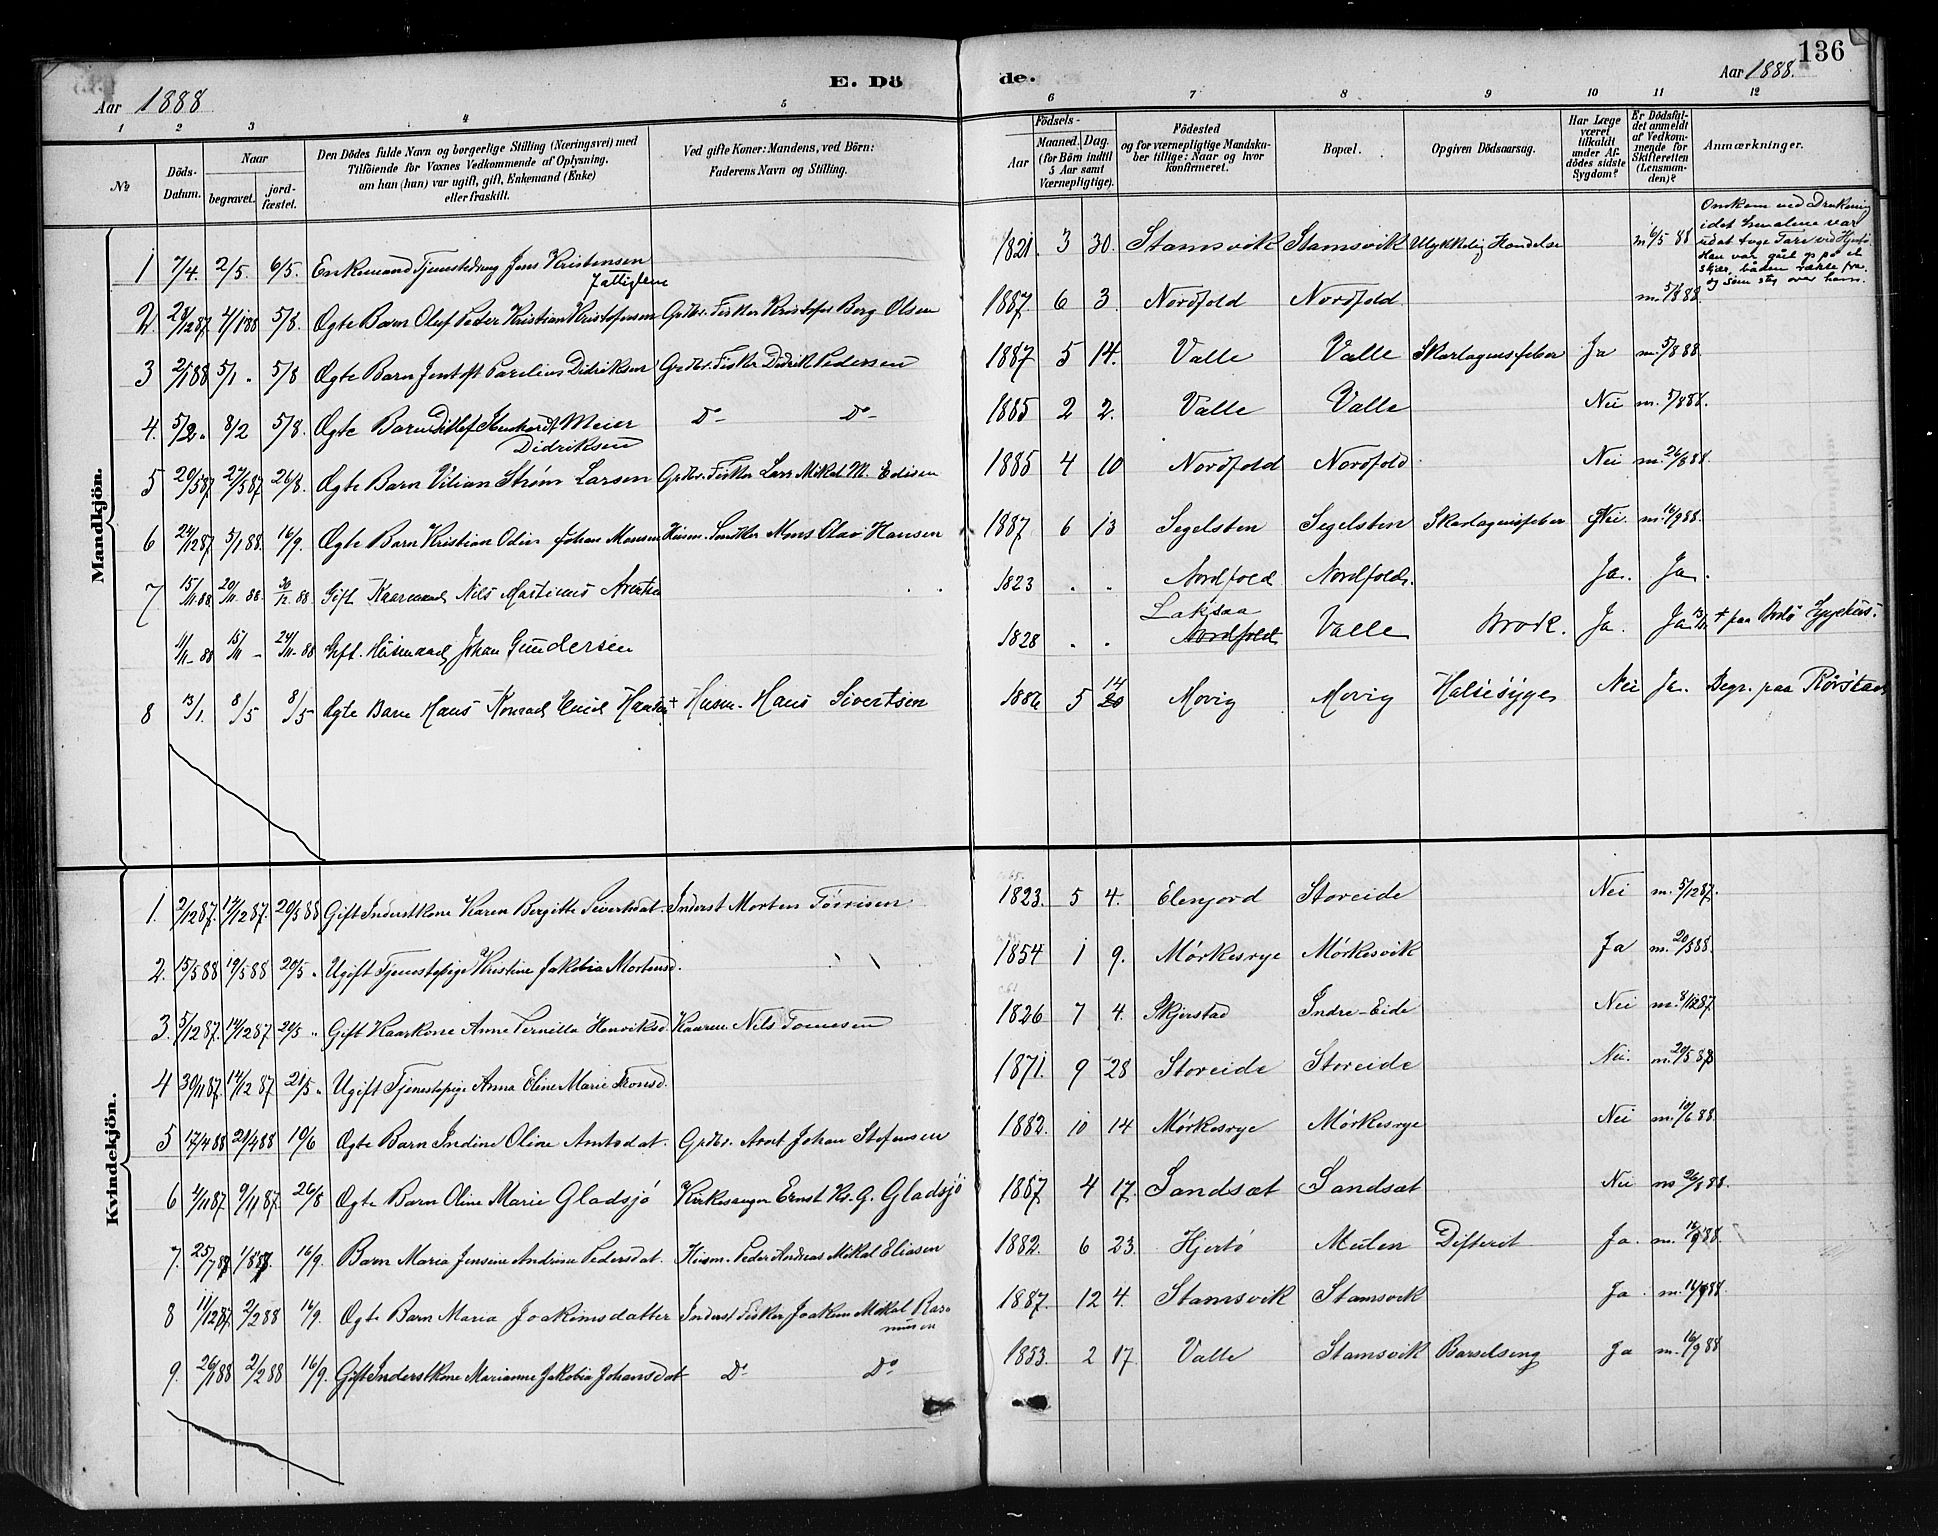 136
E. Dö de.
Aar 1888
Aar 1888.
1 2 3 4 5 6 7 8 9 10 11 12
No
Döds-Datum.
Naar
begravet.
jord-fæstet.
Den Dödes fulde Navn og borgerlige Stilling (Næringsvei) med
Tilföiende for Voxnes Vedkommende af Oplysning,
om han (hun) var ugift, gift, Enkemand (Enke)
eller fraskilt.
Ved gifte Koner: Mandens, ved Börn:
Faderens Navn og Stilling.
Födsels-
Aar
Maaned. Dag.
(for Börn indtil
5 Aar samt
Værnepligtige).
Födested
og for værnepligtige Mandska-
ber tillige: Naar og hvor
konfirmeret.
Bopæl.
Opgiven Dödsaarsag.
Har Læge
været
tilkaldt
under Af-
dödes sidste
Sygdom?
Er Dödsfal-
det anmeldt
af Vedkom-
mende for
Skifteretten
(Lensman-
den)?
Anmærkninger.
Mandkjön.
1 7/4. 2/5. 6/5. Enkemand Tjenestedreng Jens Kristensen 1821. 3 30. Stamsvik Stamsvik Ulykkelig Hændelse m. 6/5 88
Omkom ved Drukning
idet han alene var
ude at tage Tare ved Hjertö.
Han var gået op på et
skjær, båden rækte fra
og söen steg over ham.
2. 28/12 87. 4/1 88 5/8. Ægte Barn Oluf Peder Kristian Kristofersen Grdbr. Fisker Kristofer Borg Olsen 1887. 6 3. Nordfold Nordfold m. 5/8 88
3 2/1 88 5/1 " 5/8 Ægte Barn Jentoft Parelius Didriksen Grdbr. Fisker Didrik Pedersen 1887 5 14. Valle Valle Skarlagensfeber Ja m. 5/8 88.
4. 5/2 " 8/2 5/8. Ægte Barn Ditlef Meier
Didriksen Do Do 1885 2 2. Valle Valle Nei m. 5/8 88.
5 20/5 87. 27/5 87. 26/8. Ægte Barn Vilian Strøm Larsen Grdbr. Fisker Lars Mikal M. Edisen 1885 4 10 Nordfold Nordfold Nei m. 26/8 88.
6 24/12 87. 5/1 88. 16/9. Ægte Barn Kristian Odin Johan Monsen Husm. Mons Olav Hansen 1887 6 13 Segelsten Segelsten Skarlagensfeber Nei. m. 16/9 88.
7 15/11 88. 20/11 88. 30/12 88 Gift Kaarmand Nils Martinus 1823 " " Nordfold Nordfold. Ja. Ja.
11/11 - 88 15/11 - 24/11 - 88 Gift. Husmand Johan Gundersen 1828 " " Laksaa Nordfold Valle Brok. Ja. Ja + paa Bodö Sygehus.
8 13/1. 8/5 8/5 Ægte Barn Hans Konrad Emil Hansen + Husm. Hans Sivertsen 1886 5 14 20 Movig Movig Halssyge Nei Ja. Begr. paa Rörstad
Kvindekjön.
1. 2/12 87. 14/12 87. 20/5 88 Gift Inderstkone Karen Bergitte Sivertsdat. Inderst Morten Törrisen 1823. 5 4. Elenjord Storeide Nei m. 5/12 87.
2. 15/5 88 19/5 88 20/5 " Ugift Tjenestepige Kristine Jakobia Mortensd. 1854 1 9. Mørkesrye Mørkesvik Ja m. 20/5 88.
3. 5/12 87. 14/12 87 20/5 " Gift Kaarkone Anne Pernilla Henriksd. Kaarm. Nils Tomesen 1826 7 4. Skjerstad Indre-Eide Nei m. 8/12 87.
4 30/11 87. 14/12 87 21/5 " Ugift Tjenestepige Anna Eline Marie Tronsd. 1871. 9 28 Storeide Storeide Nei. m. 20/5 88
5 17/4 88 29/4 88 10/6 Ægte Barn Indine Oline Arntsdat. Grdbr. Arnt Johan Stefensen 1882. 10 14 Mørkesrye Mørkesrye Nei m. 10/6 88.
6 4/11 87. 9/11 87. 26/8 Ægte Barn Oline Marie Gladsjö Kirkesanger Ernst Kr. G. Gladsjö 1887 4 17. Sandsæt Sandsæt Nei m 26/8 88.
7. 25/7 88 1/8 88 16/9. Barn Maria Jensine Andrine Pedersdat. Husm. Peder Andreas Mikal Eliasen 1882. 6 23. Hjertö Mulen Difterit Ja m. 16/9 88.
8 11/12 87. 2/2 88 16/9. Ægte Barn Maria Joakimsdatter Inderst Fisker Joakim Mikal Ras-
musen 1887. 12 4. Stamsvik Stamsvik Ja m. 16/9 88.
9. 26/1 88 2/2 88 16/9. Gift Inderstkone Marianne Jakobia Johansdat Do Do 1853. 2 17. Valle Stamsvik Barselseng Ja m. 16/9 88